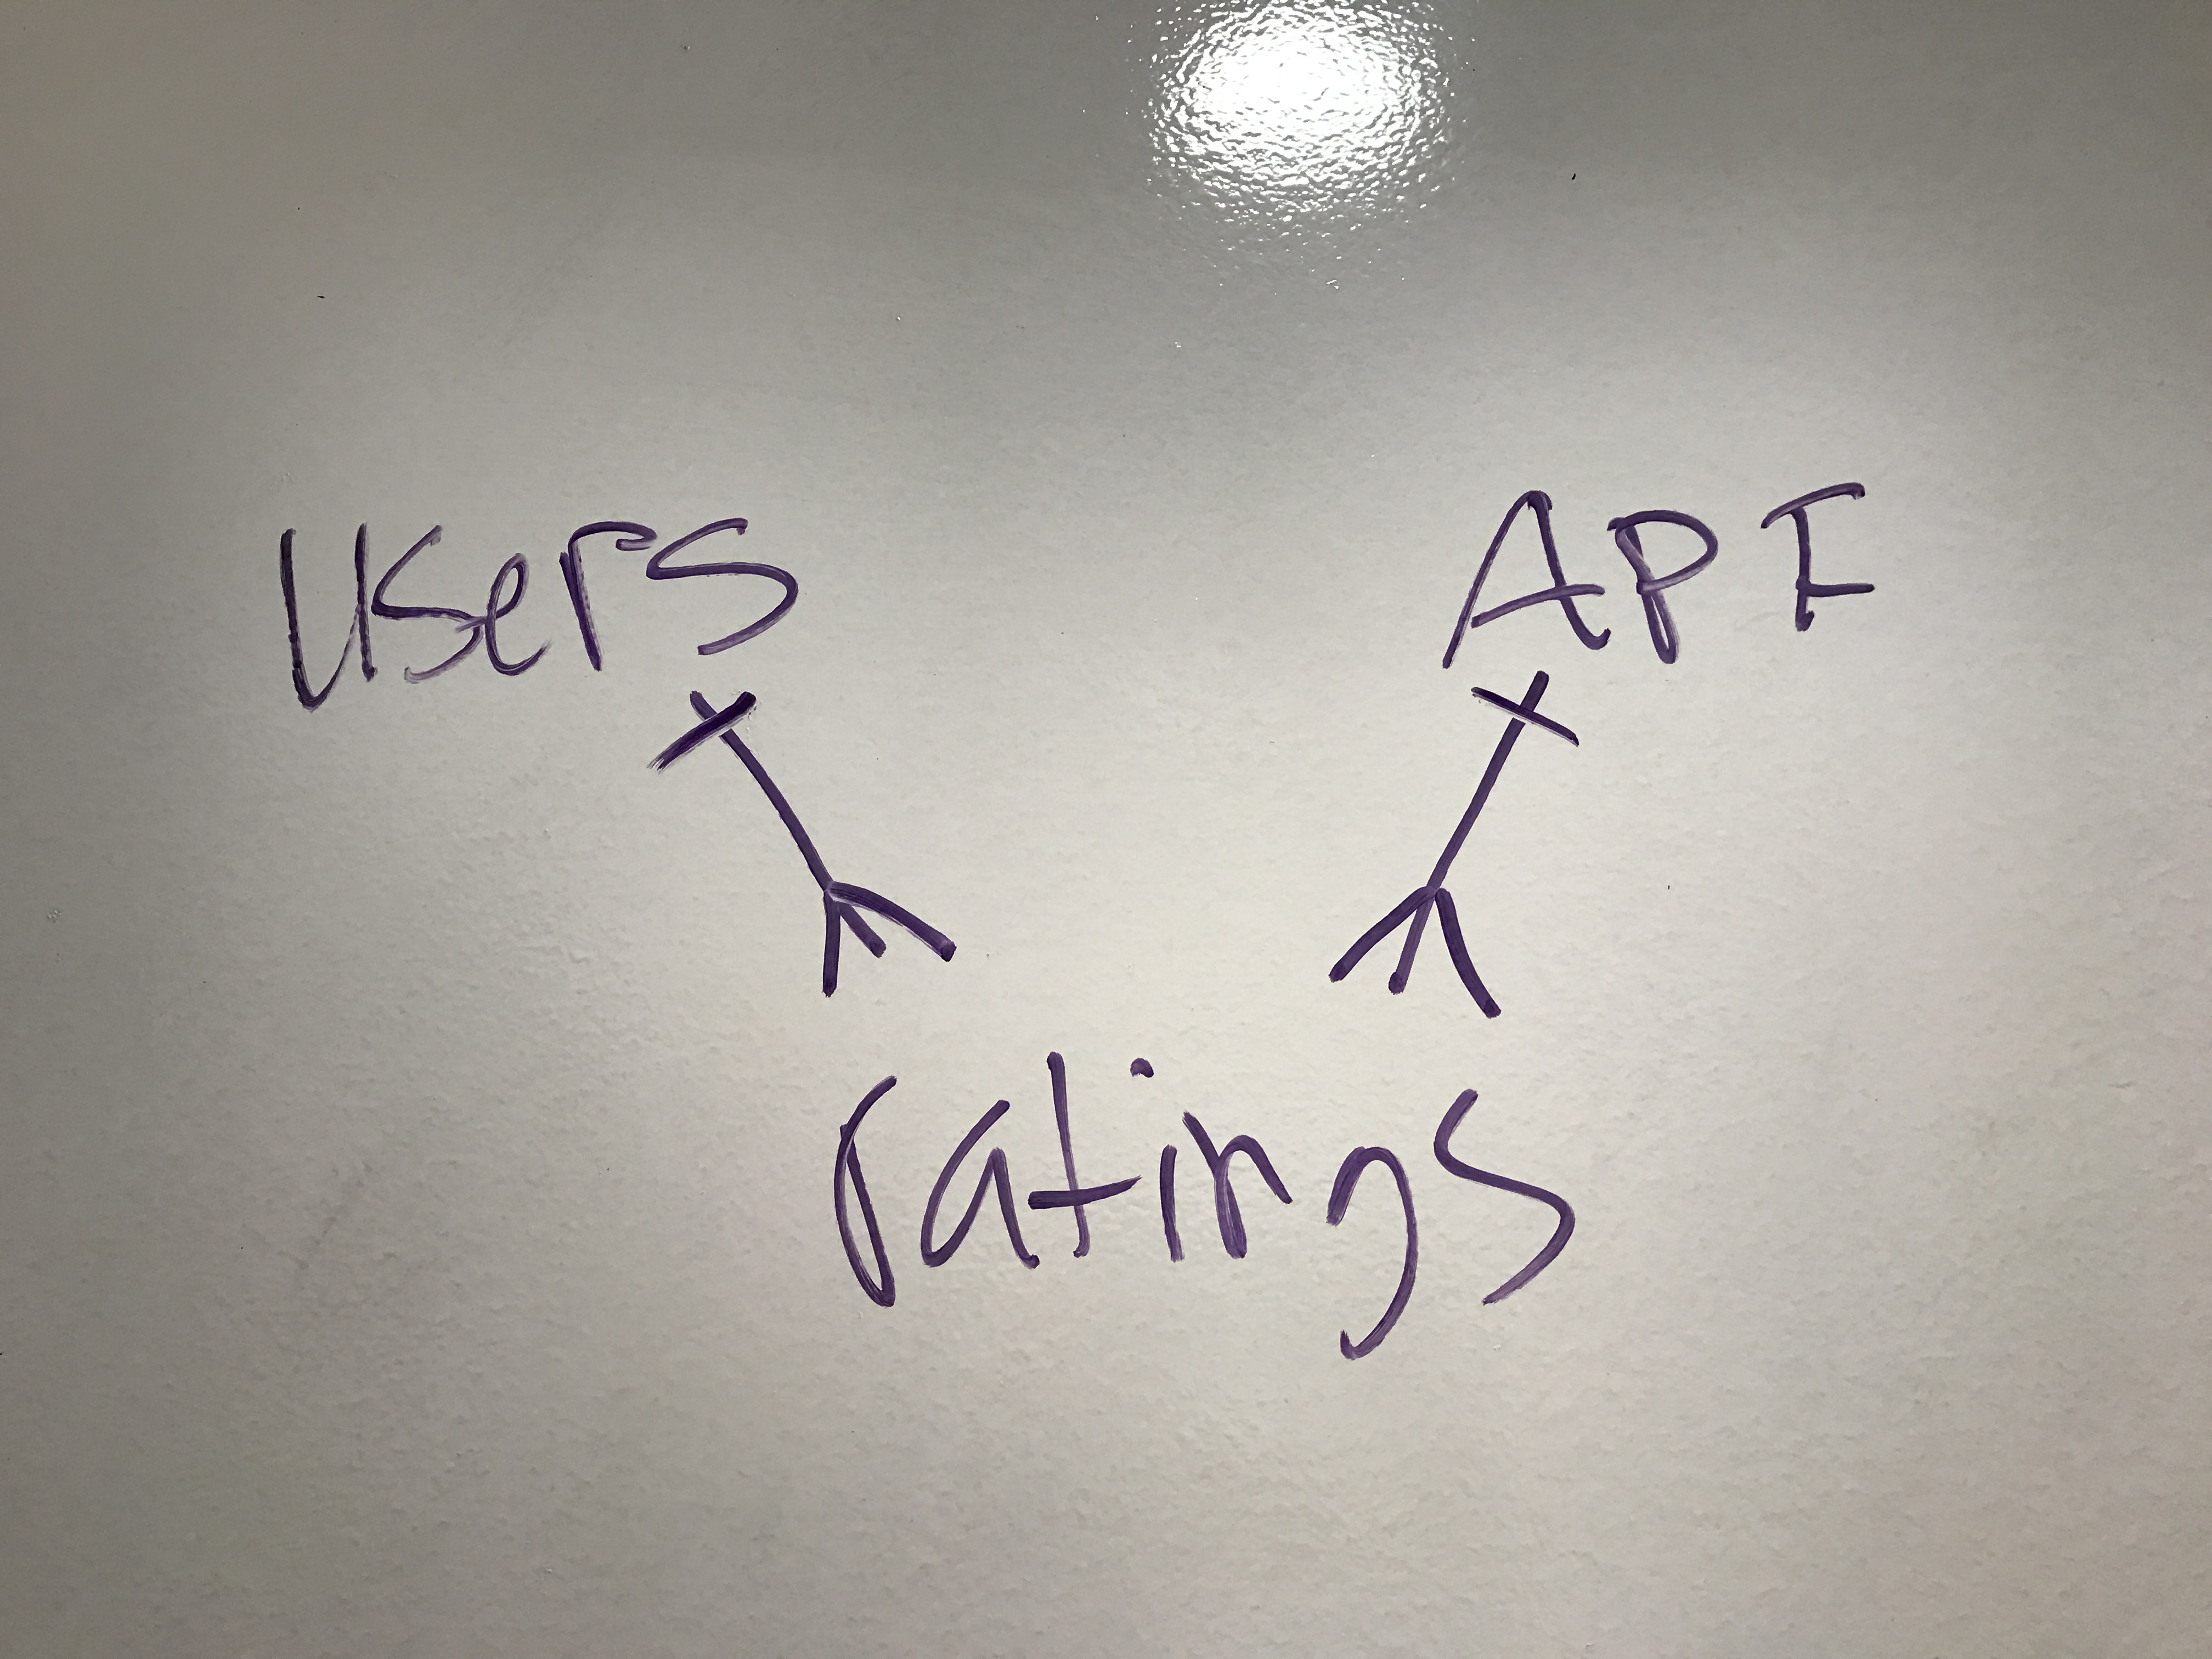 Users
API
ratings